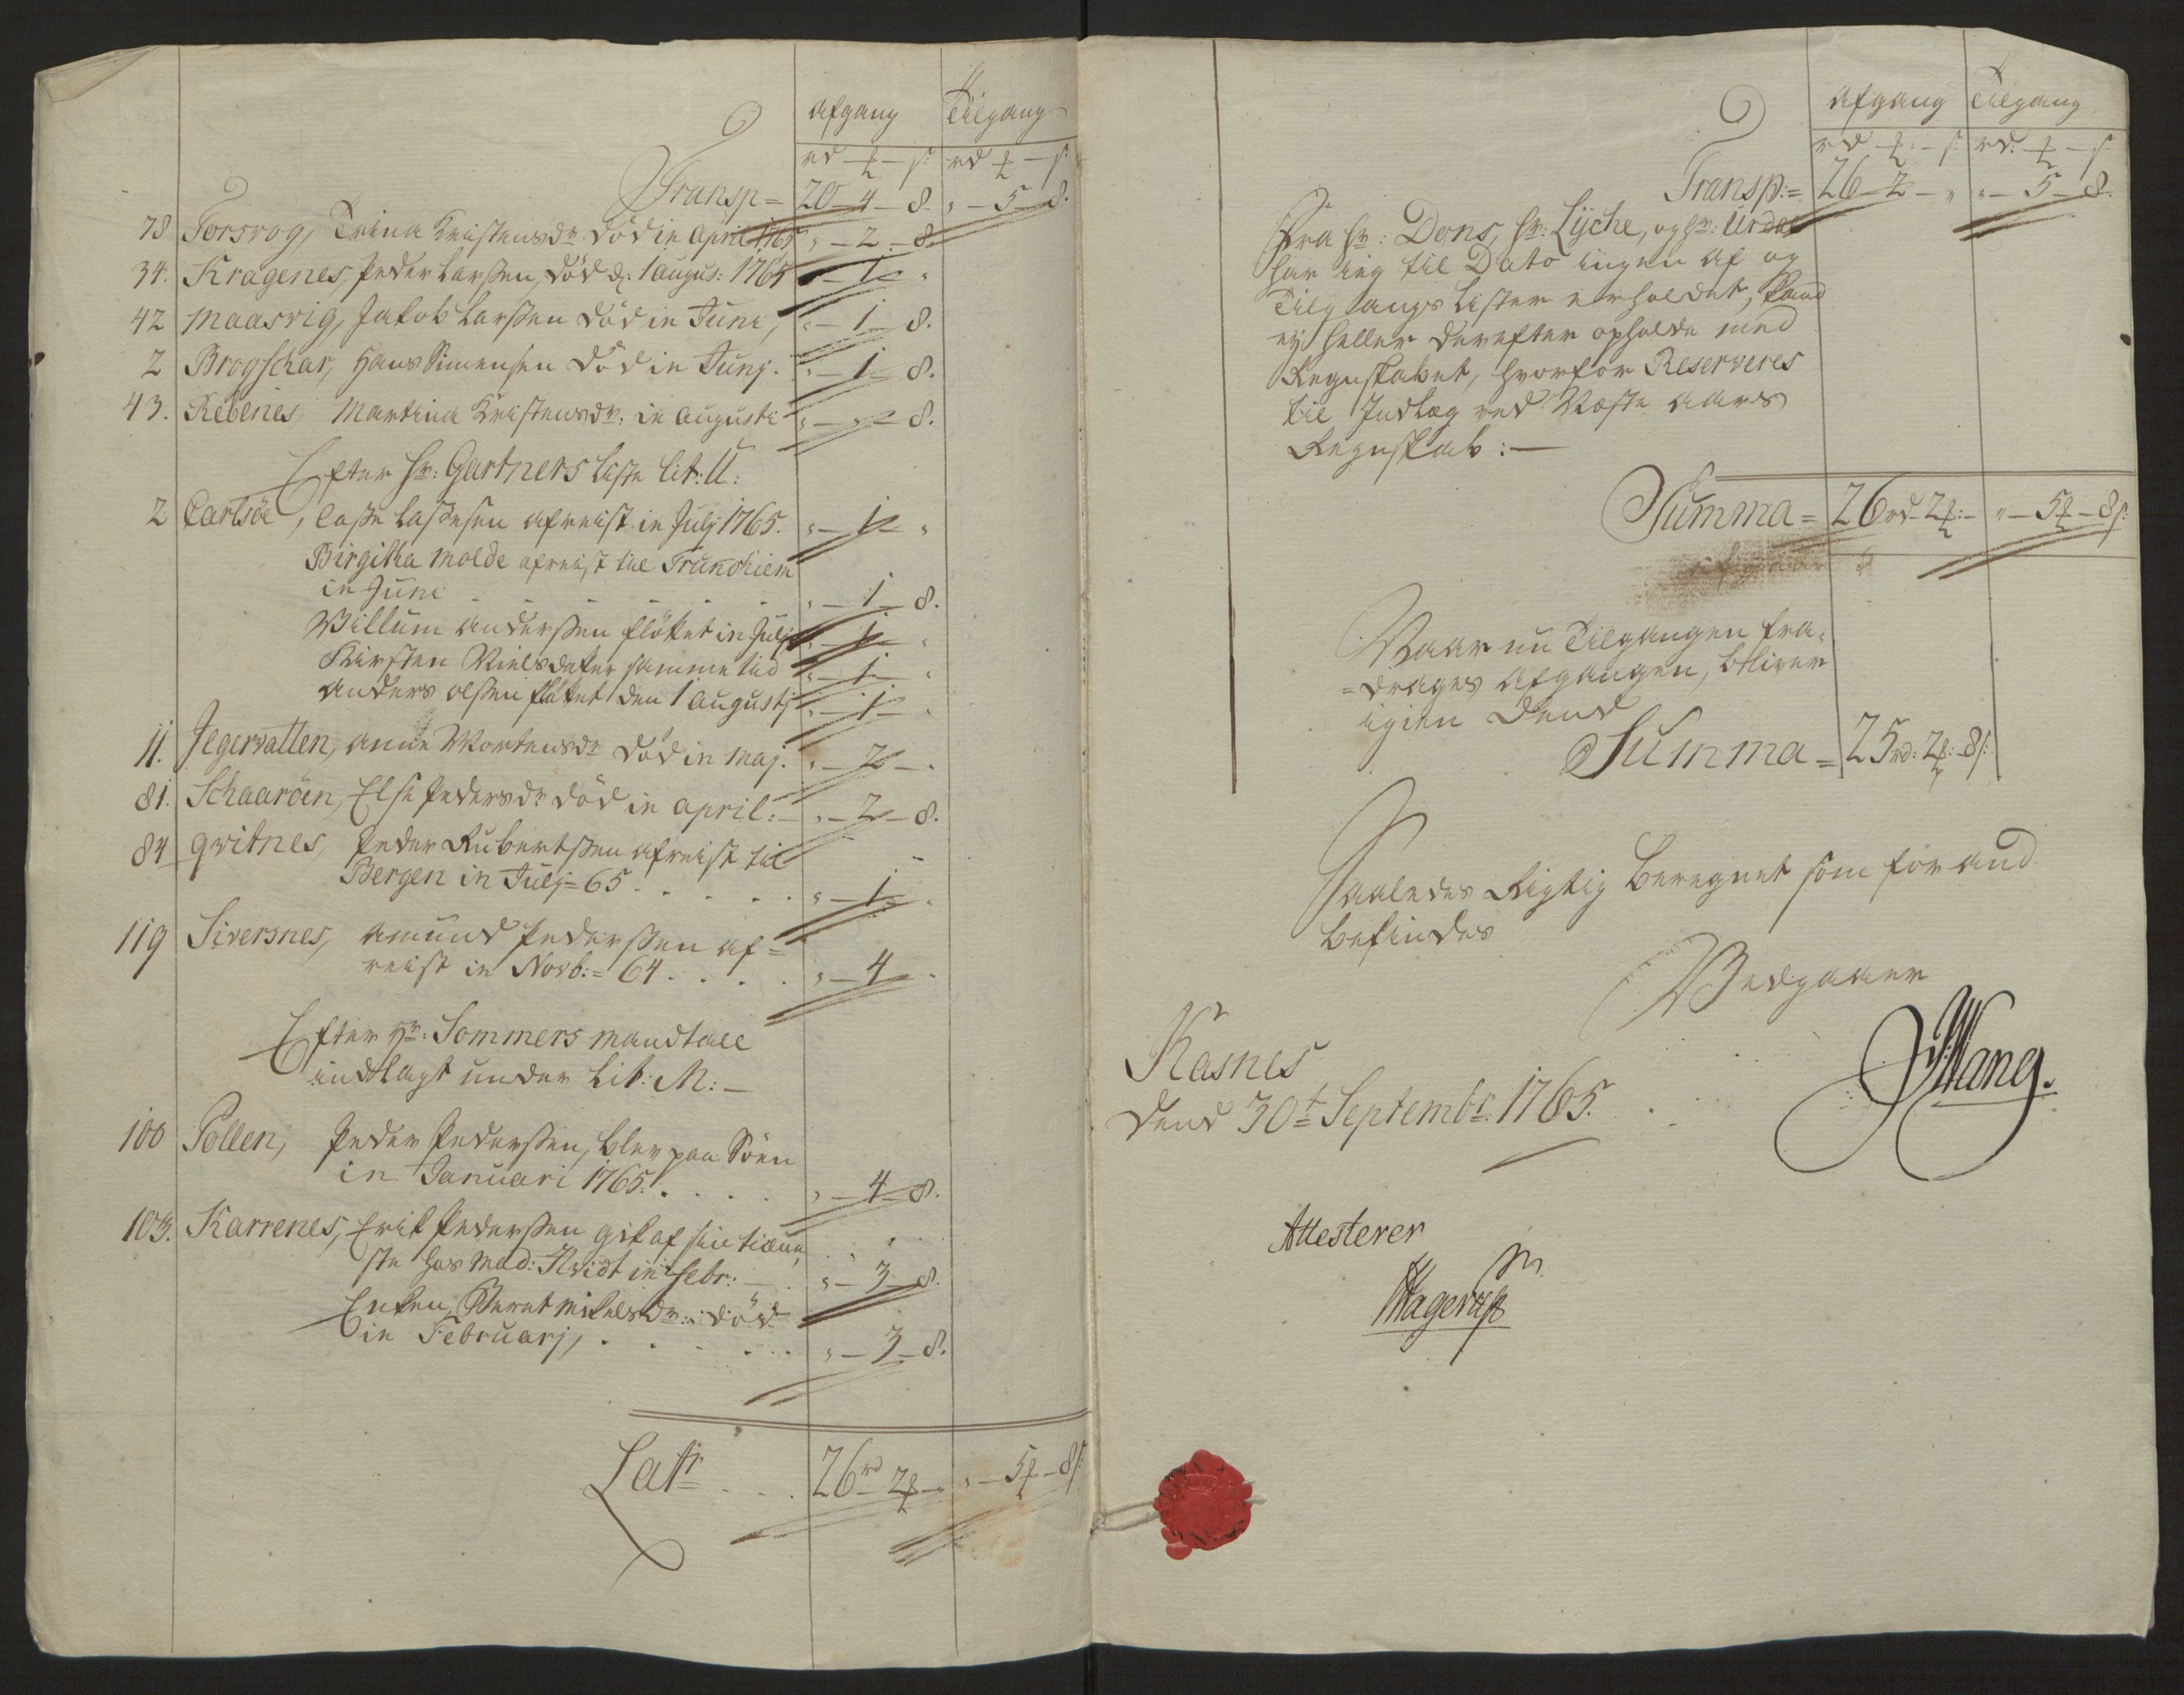 Afgang Tilgang
rd – ₰ – s: rd ₰ – s:
Transp = 20 – 4 – 8. „ – 5 – 8.
78 Torsvog, Trina Kristensdr død in April 1765 „ – 2 – 8.
34. Kragenes, Peder Larsen, død d: 1 Augus: 1765 „ – 1 – „
42 Maasvig, Jakob Larsen død in Juni, „ – 1 – 8.
2 Brogskar, Hans Simensen død in Junj. „ – 1 – 8.
43. Rebenes, Martina Kristensdr: in Augusti „ – „ – 8.
Efter Hr: Gartners Liste Lit: U:
2 Carlsöe, Lasse Lassesen afreist in Julj 1765. „ – 1 – „
Birgitha Molde afreist til Trundhiem
in Juni „ – 1 – 8.
Villum Andersen fløttet in Julj „ – 1 – „
Kirsten Nielsdatter samme tid „ – 1 – „
Anders Olsen fløttet den 1 Augustj „ – 1 – „
11. Jegervatten, Anne Mortensdr død in Maj. „ – 2 – „
81. Schaaröen, Else Pedersdr død in April: – „ – 2 – 8.
84 Qvitnes, Peder Rubertsen afreist til
Bergen in Julj = 65 . . . . „ – 1 – „
119 Siversnes, Amund Pedersen af=
reist in Novb: = 64 . . . . „ – 4 – „
Efter Hr: Sommers Mandtall
indlagt under Lit: M: –
100 Pollen, Peder Pedersen, blev paa Söen
in Januari 1765. . . . „ – 4 – 8.
103. Karvenes, Erik Pedersen gik af sin tiene
ste hos Mad: Hvidt in Febr: – „ – 3 – 8.
Enken, Beret Mikelsdr: død
in Februarj, . . . . „ – 3 – 8.
Latr . . . 26 rd 2 ₰ – „ – 5 ₰ – 8 s:
Afgang Tilgang
rd – ₰: – s: rd. ₰ – s
Transp: = 26 – 2 – „ „ – 5 – 8.
Fra Hr: Dons, Hr: Lyche, og Hr: Urdal
har ieg til Dato ingen Af og
Tilgangs Lister erholdet, kand
ej heller derefter opholde med
Regnskabet, hvorfor Reserveres
til Indlæg ved Næste Aars
Regnskab: –
Summa = 26 rd 2 ₰: – „ – 5 ₰ – 8 s:
Naar nu Tilgangen fra=
=drages Afgangen, bliver
igien dend
Summa = 25 rd: 2 ₰: 8 s:
Saaledes Rigtig beregnet som foran
befindes
Vedgaaer
Kasnes
dend 30t Septembr: 1765.
JWang.
Attesterer
Hagerup